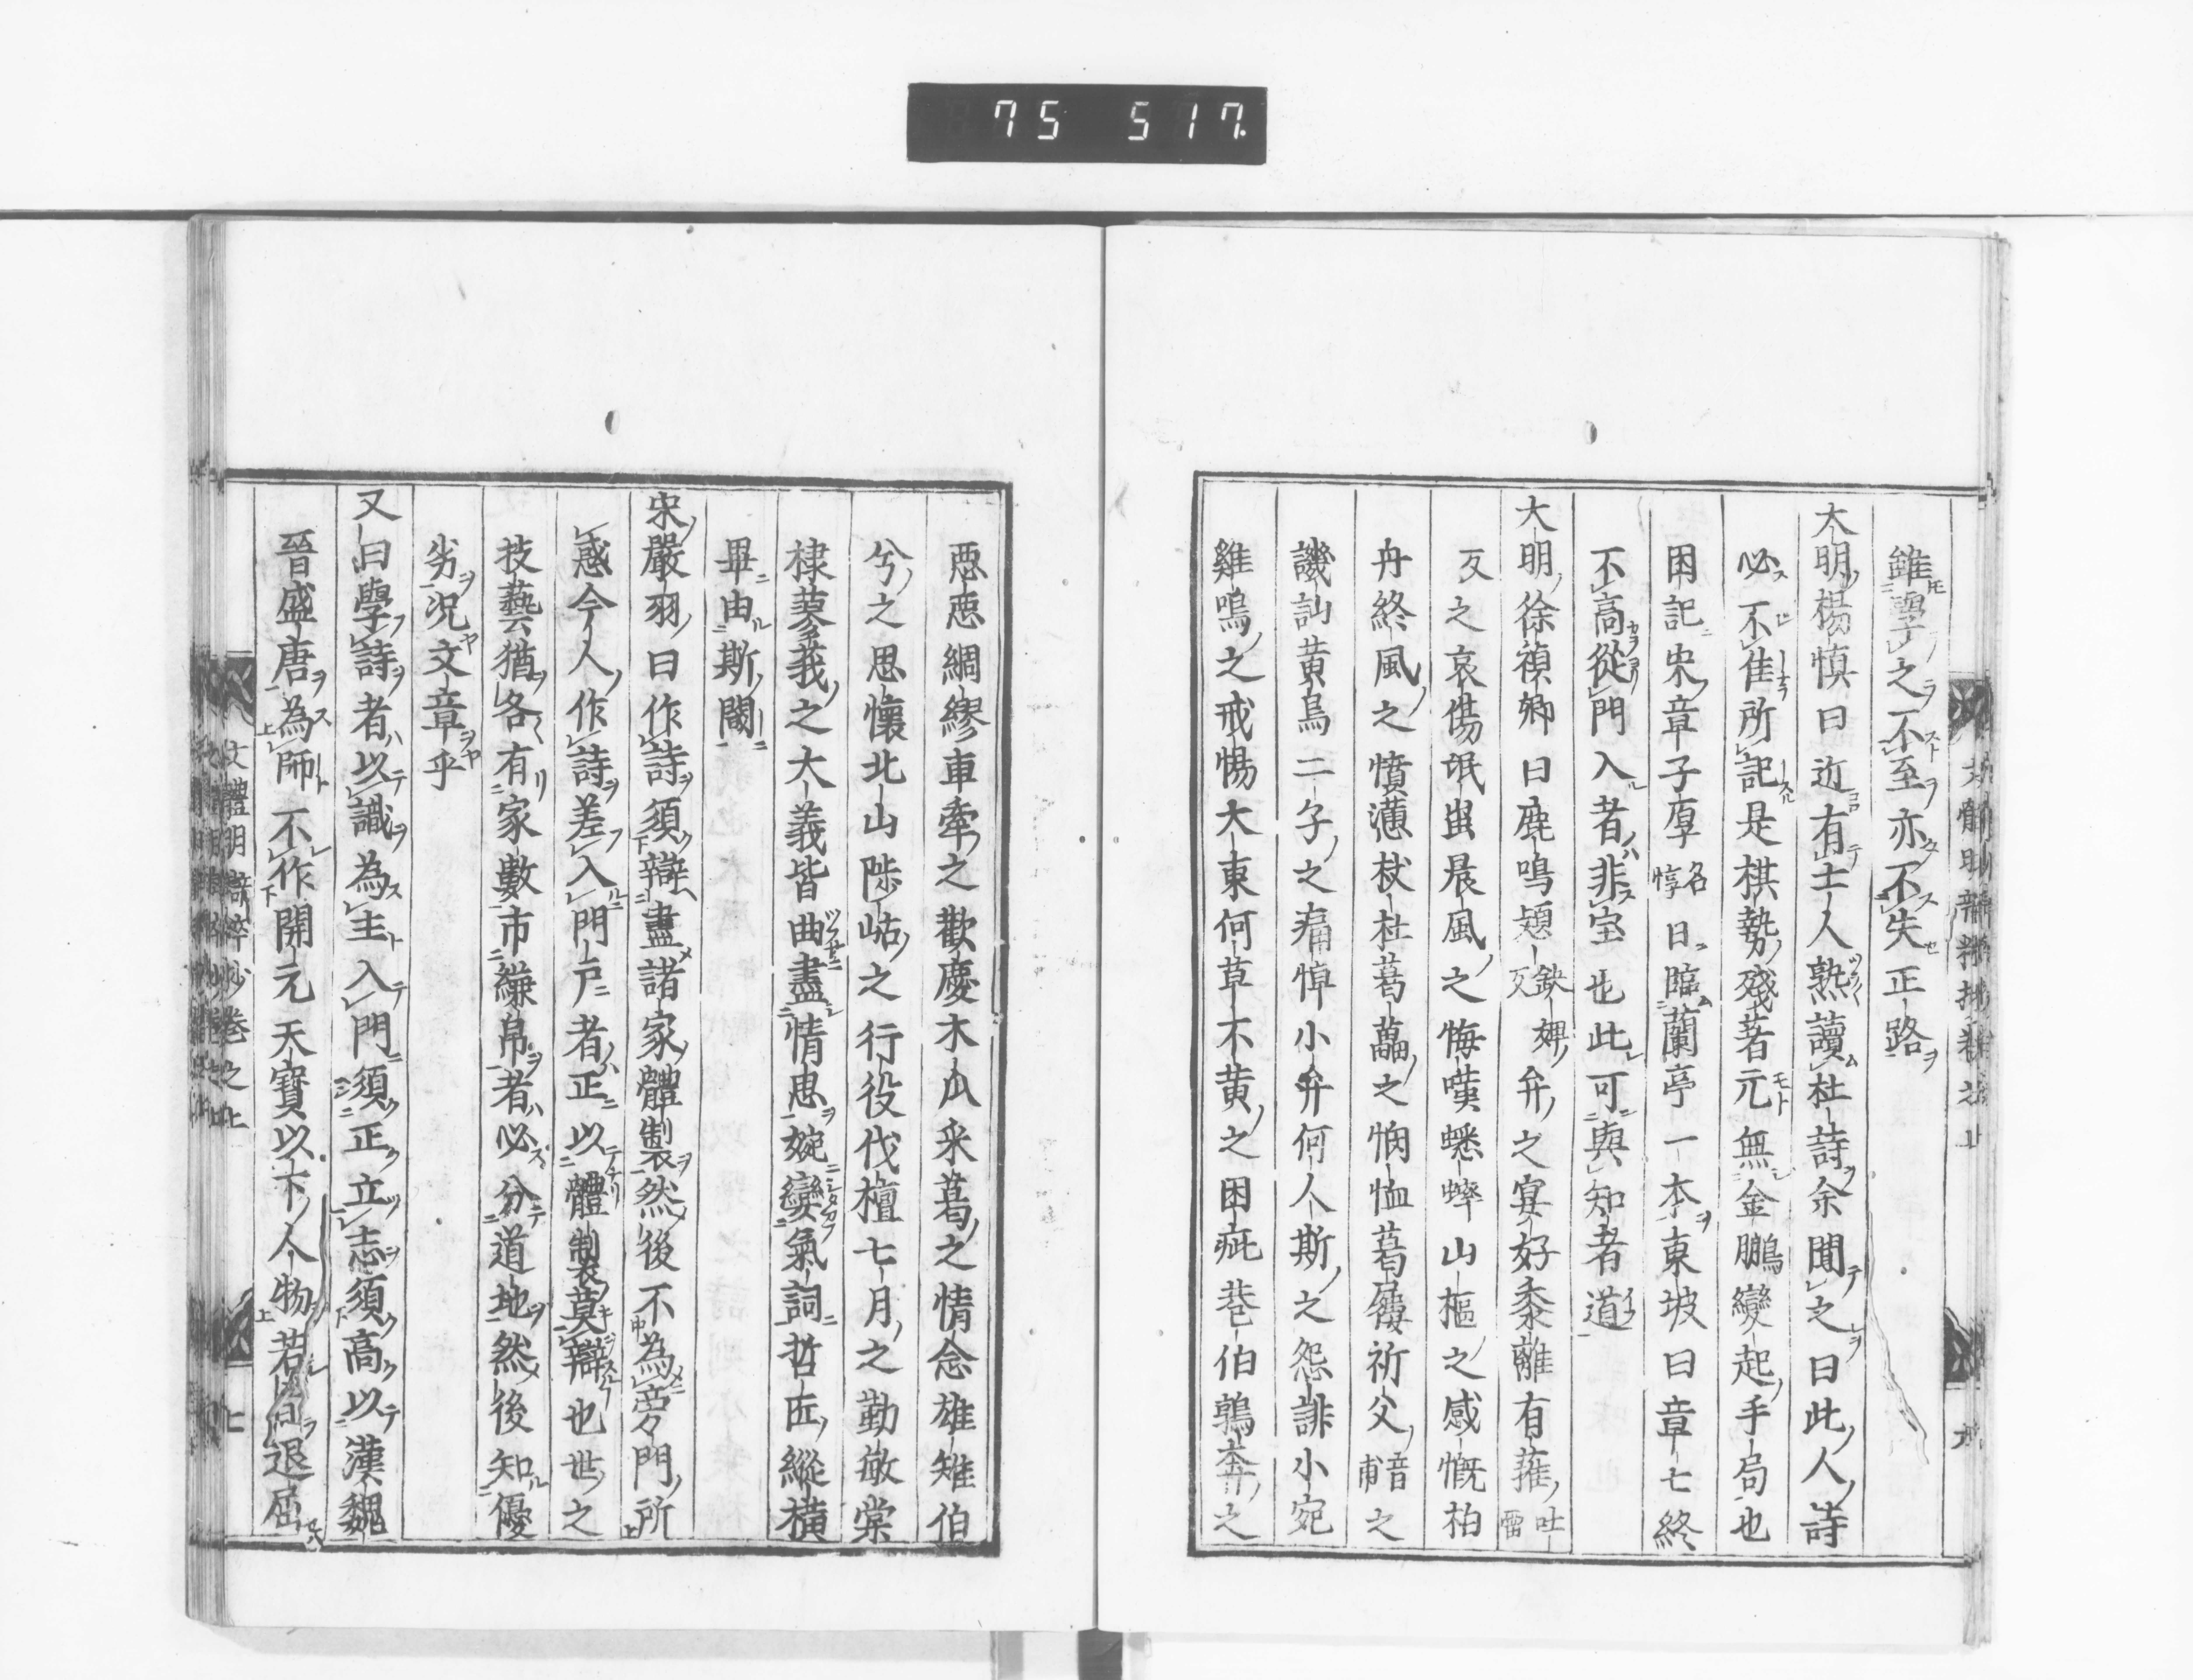 75 517.
雖學之不至亦不失正路
大明楊慎曰近有士人熟讀杜詩余聞之曰此人詩
必不佳所記是棋勢殘著元無金鵬變起手局也
困記宋章子厚名惇日臨蘭亭一本東坡曰章七終
不高從門入者非宝也此可與知者道
大明徐禎卿曰鹿鳴頍弁之宴好黍離有蓷吐雷
之哀傷氓蚩晨風之悔嘆蟋蟀山樞之感慨柏
舟終風之憤懣杕杜葛藟之憫恤葛屨祈父音甫之
譏訕黄鳥二子之痛悼小弁何人斯之怨誹小宛
雞鳴之戒惕大東何草不黄之困疵巷伯鶉奔之
惡惡綢繆車牽之歡慶木瓜采葛之情念雄雉伯
兮之思懷北山陟岵之行役伐檀七月之勤敏棠
棣蓼莪之大義皆曲盡情思婉孌氣詞哲匠縱横
畢由斯閾
宋嚴羽曰作詩須辯盡諸家體製然後不為旁門所
惑今人作詩差入門戸者正以體製莫辯也世之
技藝猶各有家數市縑帛者必分道地然後知優
劣况文章乎
又曰學詩者以識為主入門須正立志須高以漢魏
晉盛唐為師不作開元天寶以下人物若自退屈
文體明辯粹抄卷之上